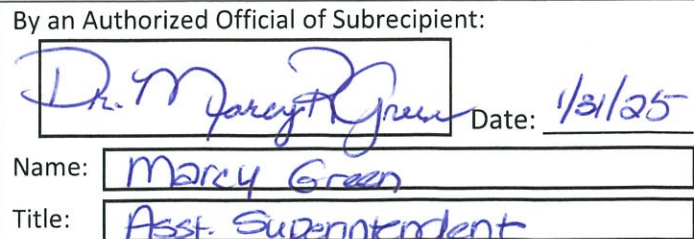 By an Authorized Official of Subrecipient:
Dr. Marcy R Green Date: 1/31/25
Name: Marcy Green
Title: Asst. Superintendent